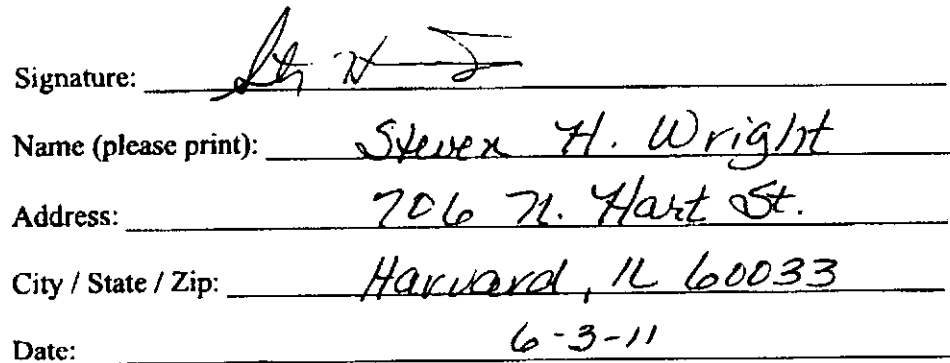 Signature:
Name (please print): Steven H. Wright
Address: 706 N. Hart St.
City / State / Zip: Harvard, IL 60033
Date: 6-3-11